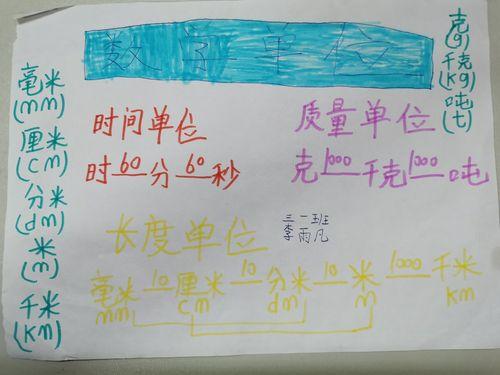 数字单位
毫米
(mm)
厘米
(cm)
分米
(dm)
米
(m)
千米
(km)
克
(g)
千克
(kg)
吨
(t)
时间单位
时 60 分 60 秒
质量单位
克 1000 千克 1000 吨
长度单位
三一班
李雨凡
毫米 10 厘米 10 分米 10 米 1000 千米
mm cm dm m km